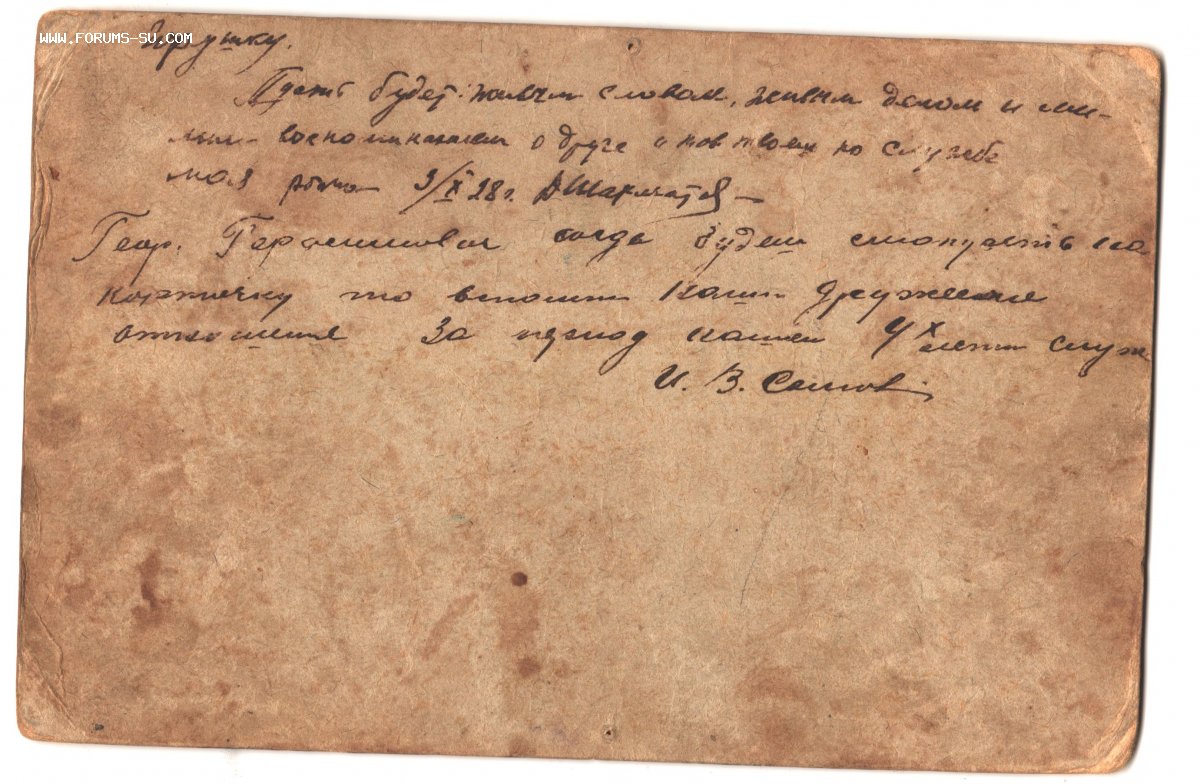 WWW.FORUMS-SU.COM
Пусть будет живым словом, живым делом и
воспоминанием о друге и по службе
моя 3/X 28 г. Шахматов
Геор. Герасимович когда будеш смотреть на
карточку то вспомни наши дружеские
отношения за период нашей 4х летн служ
И. В. Сомов